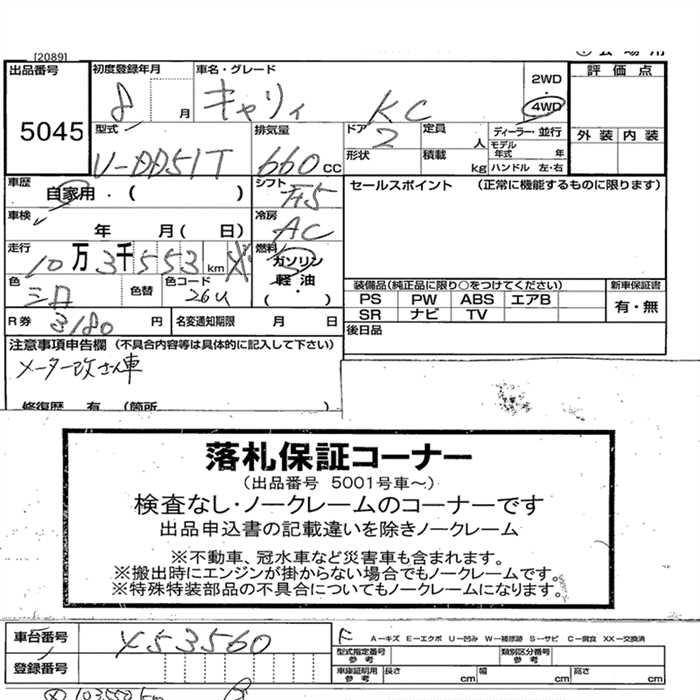 [2089]
出品番号 5045
初度登録年月 8 月
車名・グレード キャリィ KC
2WD
4WD
評価点
外装 内装
型式 V-DD51T
排気量 660 cc
ドア 2
定員 人
ディーラー・並行
モデル年式 年
形状
積載 kg
ハンドル 左・右
車歴 自家用・( )
シフト F5
セールスポイント (正常に機能するものに限ります)
車検 年 月( 日)
冷房 AC
走行 10万3千553 km
燃料 ガソリン
軽油・
( )
色
色替
色コード 26U
装備品(純正品に限り○をつけてください)
新車保証書
PS PW ABS エアB
有・無
SR ナビ TV
R券 3180 円
名変通知期限 月 日
後日品
注意事項申告欄(不具合内容等は具体的に記入して下さい)
メーター改ざん車
修復歴 有 (箇所
落札保証コーナー
(出品番号 5001号車~)
検査なし・ノークレームのコーナーです
出品申込書の記載違いを除きノークレーム
※不動車、冠水車など災害車も含まれます。
※搬出時にエンジンが掛からない場合でもノークレームです。
※特殊特装部品の不具合についてもノークレームになります。
車台番号 X53560
A-キズ E-エクボ U-凹み W-補修跡 S-サビ C-腐食 XX-交換済
型式指定番号 参考
類別区分番号 参考
登録番号
車庫証明用 参考 長さ cm 幅 cm 高さ cm